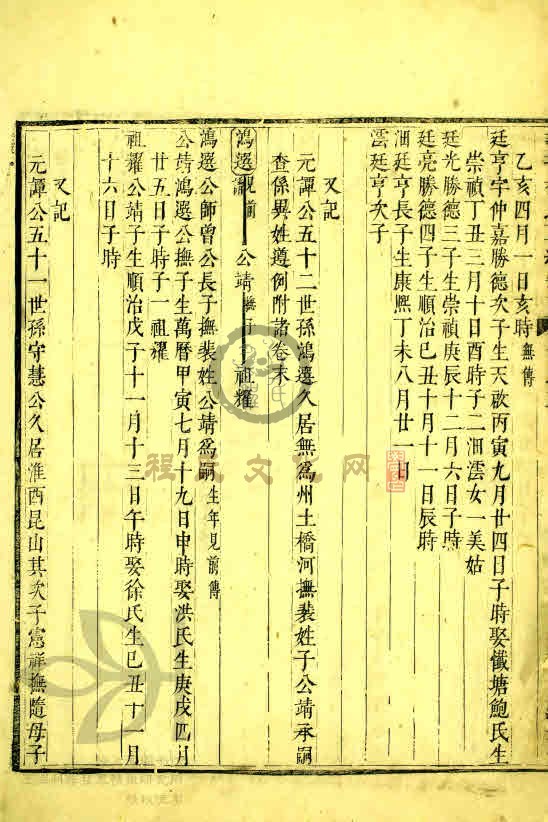 乙亥四月一日亥時無傳
廷亨字仲嘉勝德次子生天啟丙寅九月廿四日子時娶䉷塘鮑氏生
崇禎丁丑三月十日酉時子二沺澐女一美姑
廷光勝德三子生崇禎庚辰十二月六日子時
廷亮勝德四子生順治己丑十月十一日辰時
沺廷亨長子生康熙丁未八月廿一日
澐廷亨次子
又記
元譚公五十二世孫鴻選久居無爲州土橋河撫裴姓子公靖承嗣
查係異姓遵例附諸卷末
鴻選見前 公靖撫子 祖耀
鴻選公師曾公長子撫裴姓公靖爲嗣生年見前傳
公靖鴻選公撫子生萬曆甲寅七月十九日申時娶洪氏生庚戌四月
廿五日子時子一祖耀
祖耀公靖子生順治戊子十一月十三日午時娶徐氏生己丑十一月
十六日子時
又記
元譚公五十一世孫守慧公久居淮西昆山其次子憲祥撫隨母子
程氏文化网